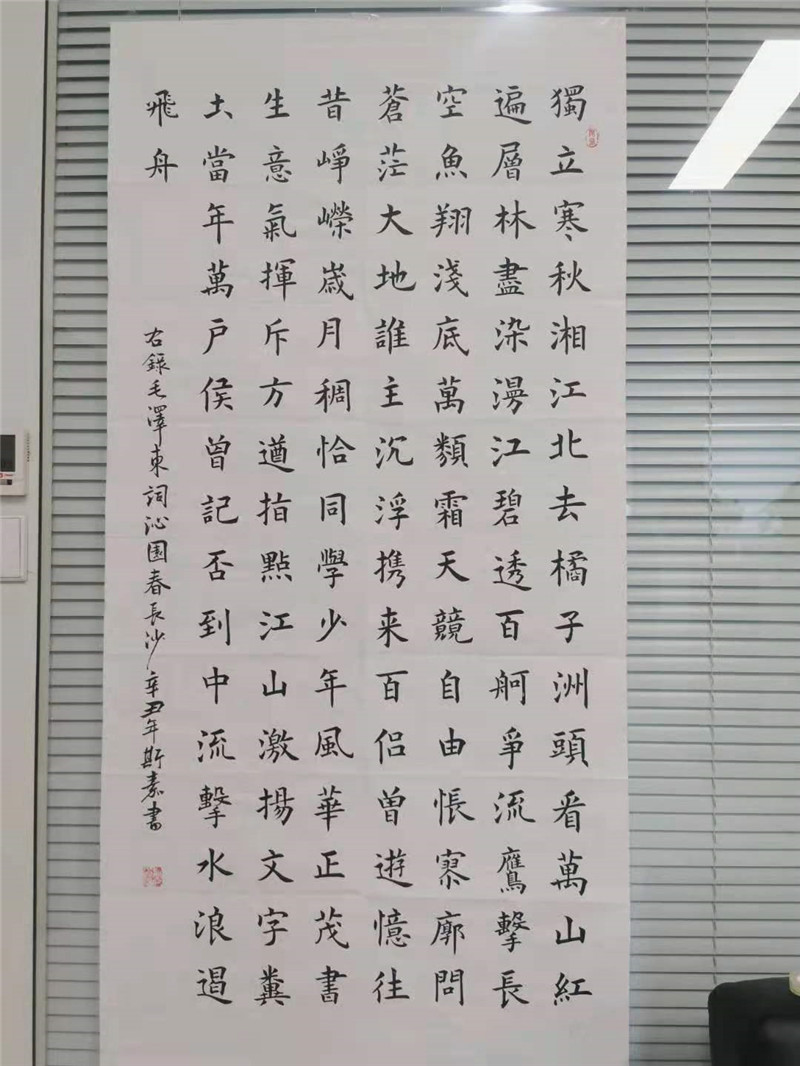 獨立寒秋湘江北去橘子洲頭看萬山紅
遍層林盡染漫江碧透百舸爭流鷹擊長
空魚翔淺底萬類霜天競自由悵寥廓問
蒼茫大地誰主沉浮携来百侣曾遊憶往
昔崢嶸歲月稠恰同學少年風華正茂書
生意氣揮斥方遒指點江山激揚文字糞
土當年萬户侯曾記否到中流擊水浪遏
飛舟
右錄毛澤東詞沁園春長沙辛丑年斯嘉書